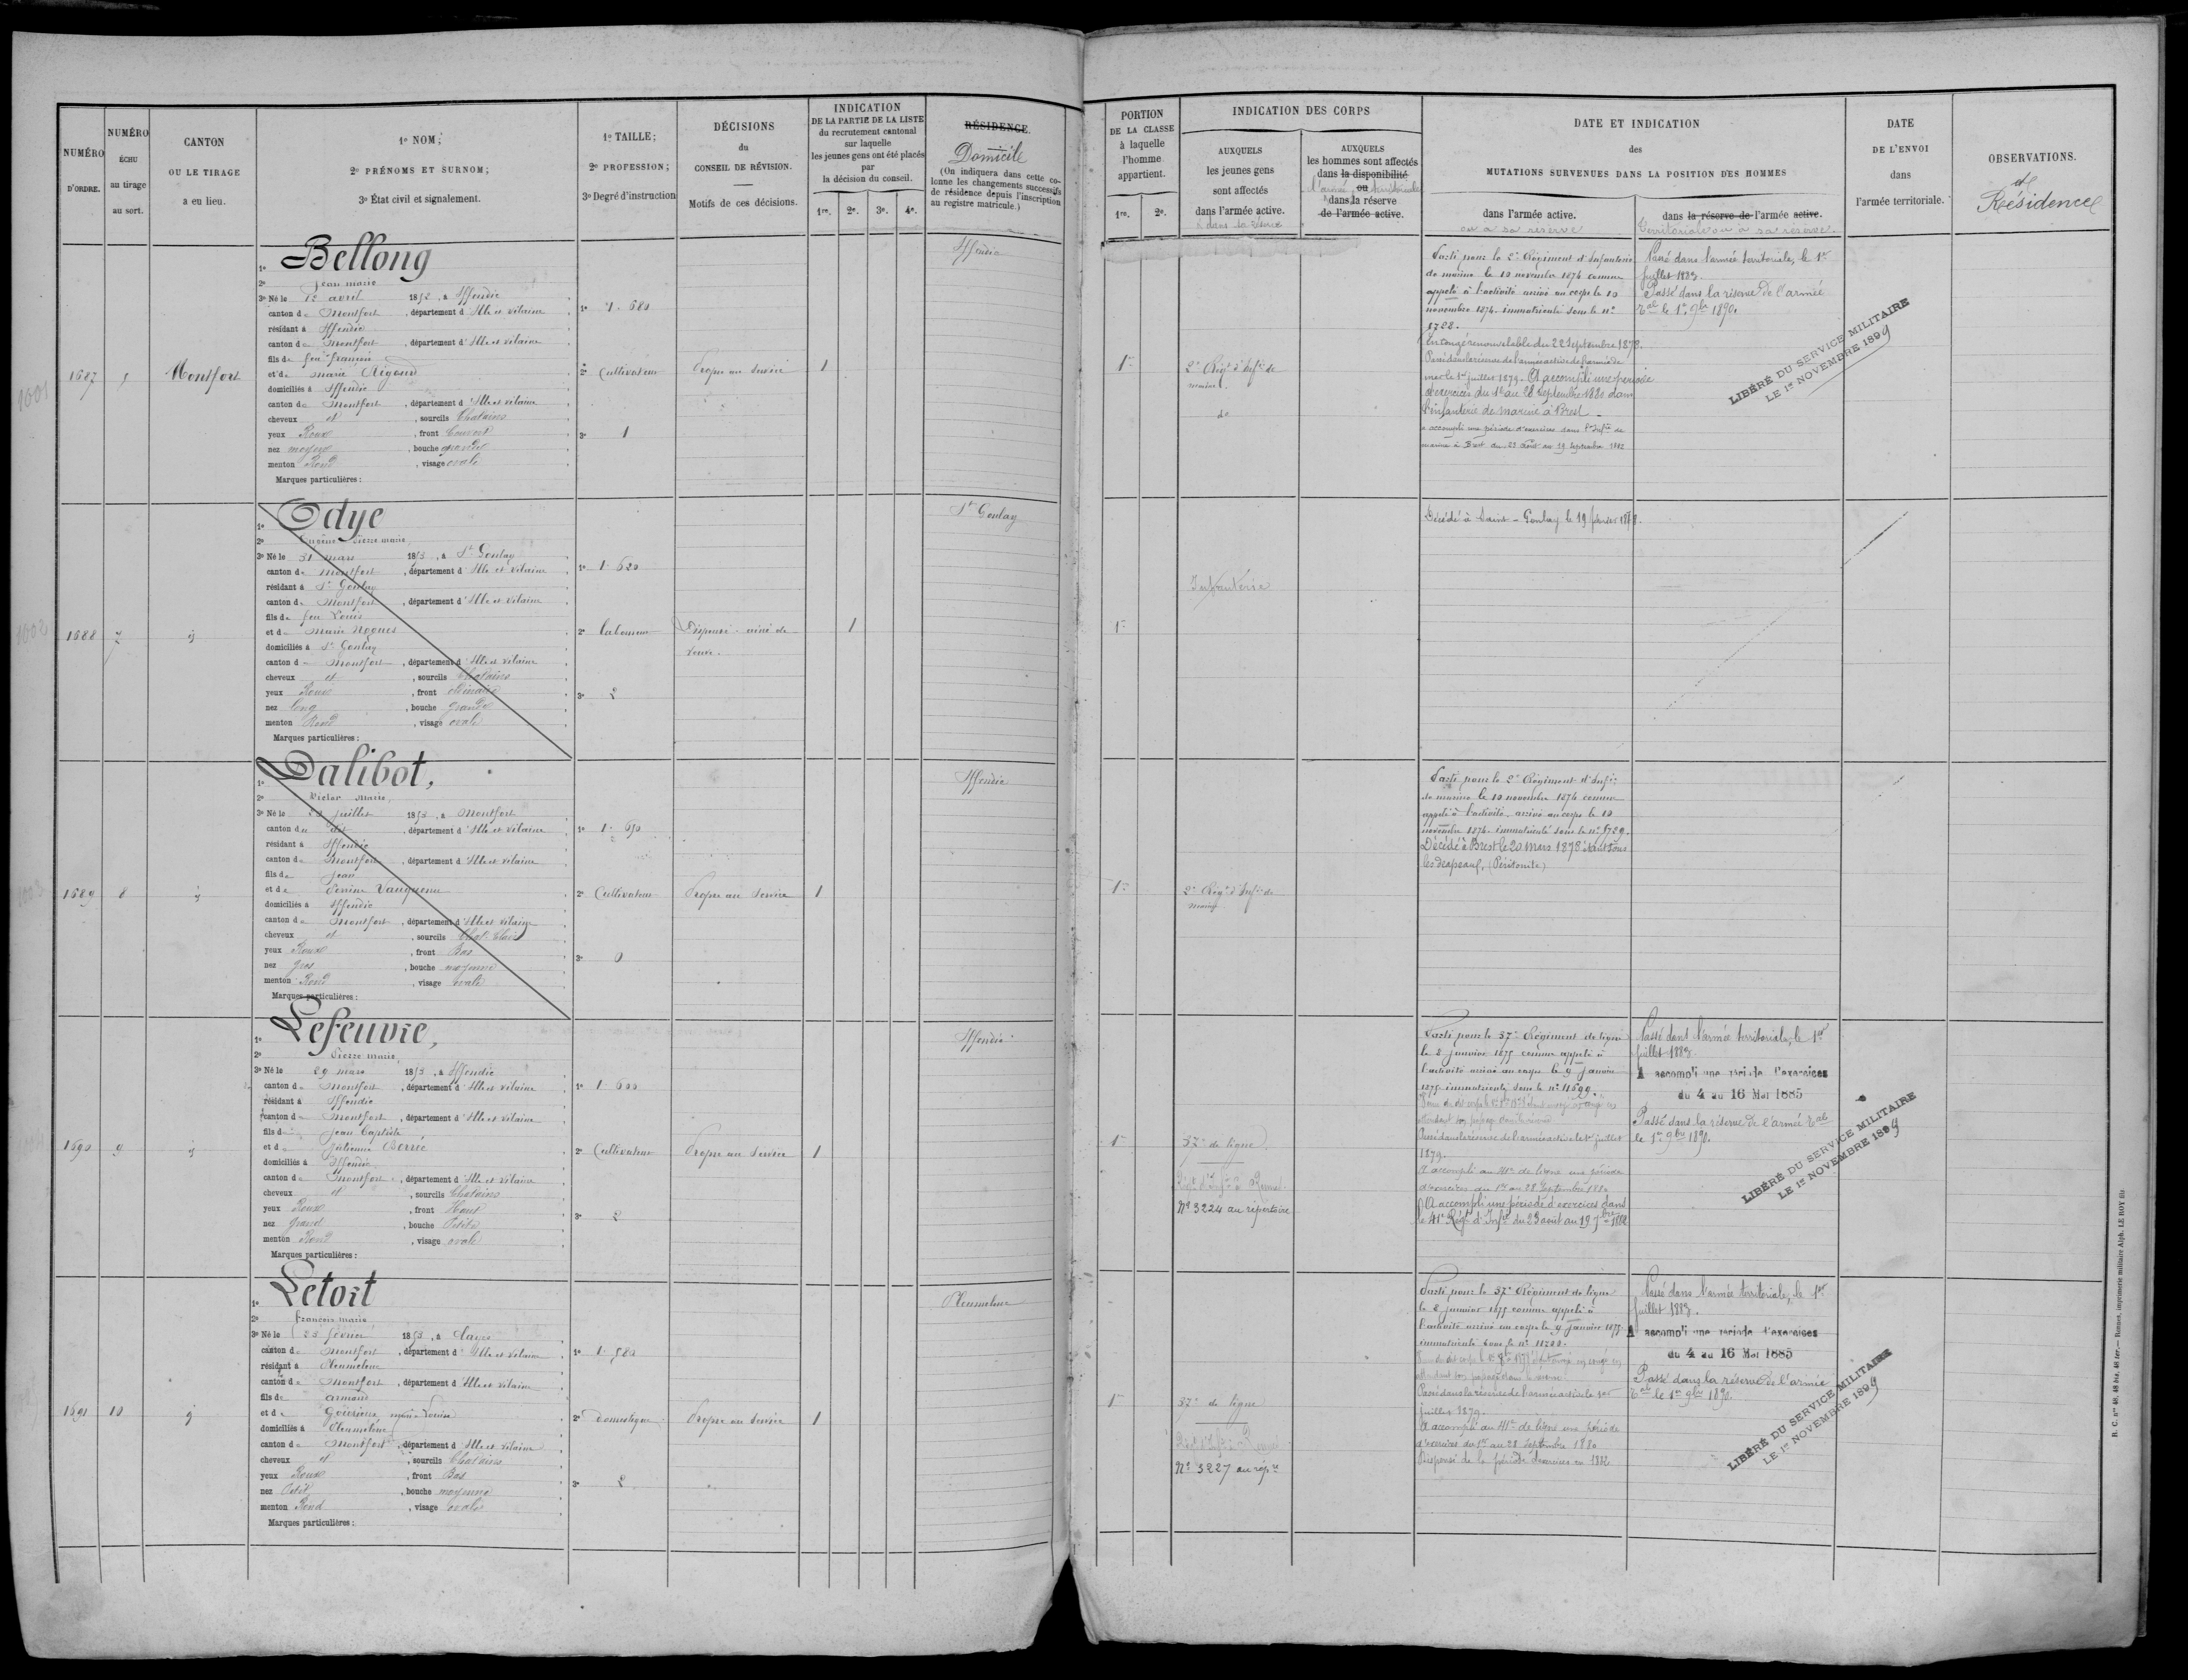 NUMÉRO
D'ORDRE.
NUMÉRO
ÉCHU
au tirage
au sort.
CANTON
OU LE TIRAGE
a eu lieu.
1º NOM;
2º PRÉNOMS ET SURNOM;
3º État civil et signalement.
1º TAILLE;
2º PROFESSION;
3º Degré d'instruction
DÉCISIONS
du
CONSEIL DE RÉVISION.
Motifs de ces décisions.
INDICATION
DE LA PARTIE DE LA LISTE
du recrutement cantonal
sur laquelle
les jeunes gens ont été placés
par
la décision du conseil.
1re. 2e. 3e. 4e.
RÉSIDENCE.
Domicile
(On indiquera dans cette co-
lonne les changements successifs
de résidence depuis l'inscription
au registre matricule.)
PORTION
DE LA CLASSE
à laquelle
l'homme
appartient.
1re. 2e.
INDICATION DES CORPS
AUXQUELS
les jeunes gens
sont affectés
dans l'armée active.
AUXQUELS
les hommes sont affectés
dans la disponibilité
ou
dans la réserve
de l'armée active.
DATE ET INDICATION
des
MUTATIONS SURVENUES DANS LA POSITION DES HOMMES
dans l'armée active.
ou a sa réserve
dans la réserve de l'armée active.
Territoriale ou a sa réserve.
DATE
DE L'ENVOI
dans
l'armée territoriale.
OBSERVATIONS.
et
Résidence
1687 Montfort
1º Bellong
2º Jean marie
3º Né le 12 avril 185 , a Iffendic
canton de Montfort , département d'Ille et Vilaine
résidant à Iffendic
canton de Montfort , département d'Ille et Vilaine
fils de feu francois
et de marie Rigaud
domiciliés à Iffendic
canton de Montfort , département d'Ille et Vilaine
cheveux et , sourcils Chatains
yeux Roux , front Couvert
nez moyen , bouche grande
menton Rond , visage ovale
Marques particulières :
1º 1. 680
2º Cultivateur
3º 1
Propre au Service
1
Iffendic
1re
2e Régt d'Infie de
marine
Parti pour le 2e Régiment d'Infanterie
de marine le 10 novembre 1874 comme
appelé à l'activité arrivé au corps le 10
novembre 1874. immatriculé sous le nº
5728.
En congé renouvelable du 22 Septembre 1878.
Passé dans la réserve de l'armée active de l'armée de
mer le 1er juillet 1879. A accompli une période
d'exercices du 1er au 28 Septembre 1880 dans
l'infanterie de marine à Brest
a accompli une période d'exercices dans l'Infie de
marine à Brest du 23 Août au 19 Septembre 1882
Passé dans l'armée territoriale, le 1er
juillet 1883.
Passé dans la réserve de l'armée
Tale le 1er 9bre 1890.
LIBÉRÉ DU SERVICE MILITAIRE
LE 1er NOVEMBRE 1899
1688 7 id
1º Odye
2º Eugène Pierre marie,
3º Né le 31 mars 1853 , a St Gonlay
canton de montfort , département d'Ille et Vilaine
résidant à St Gonlay
canton de Montfort , département d'Ille et Vilaine
fils de feu Louis
et de Marie Nogues
domiciliés à St Gonlay
canton de Montfort , département d'Ille et Vilaine
cheveux et , sourcils Chatains
yeux Roux , front ordinaire
nez long , bouche grande
menton Rond , visage ovale
Marques particulières :
1º 1. 620
2º Laboureur
3º 2
Dispensé. ainé de
veuve.
1
St Gonlay
1re
Infanterie
Décédé à Saint-Gonlay le 19 février 1878.
1689 8 id
1º Dalibot,
2º Victor Marie,
3º Né le 23 juillet 1853 , a Montfort
canton du dit , département d'Ille et Vilaine
résidant à Iffendic
canton de Montfort , département d'Ille et Vilaine
fils de Jean
et de Perrine Vauquenu
domiciliés à Iffendic
canton de Montfort , département d'Ille et Vilaine
cheveux et , sourcils Chat. Clairs
yeux Roux , front Bas
nez gros , bouche moyenne
menton Rond , visage ovale
Marques particulières :
1º 1. 650
2º Cultivateur
3º 0
Propre au Service
1
Iffendic
1re
2e Régt d'Infie de
marine
Parti pour le 2e Régiment d'Infie
de marine le 10 novembre 1874 comme
appelé à l'activité. arrivé au corps le 10
novembre 1874. immatriculé sous le nº 5729.
Décédé à Brest le 20 Mars 1878 étant sous
les drapeaux, (Péritonite)
1690 9 id
1º Lefeuvre,
2º Pierre marie,
3º Né le 29 mars 1853 , a Iffendic
canton de Montfort , département d'Ille et Vilaine
résidant à Iffendic
canton de Montfort , département d'Ille et Vilaine
fils de Jean Baptiste
et de Julienne Berrée
domiciliés à Iffendic
canton de Montfort , département d'Ille et Vilaine
cheveux et , sourcils Chatains
yeux Roux , front Haut
nez grand , bouche Petite
menton Rond , visage ovale
Marques particulières :
1º 1. 600
2º Cultivateur
3º 2
Propre au Service
1
Iffendic
1re
37e de ligne
Nº 3224 au répertoire
Parti pour le 37e Régiment de ligne
le 8 janvier 1875 comme appelé à
l'activité arrivé au corps le 9 Janvier
1875 immatriculé sous le nº 11699.
Passé dans la réserve de l'armée active le 1er juillet
1879.
A accompli au 41e de ligne une période
d'exercices du 1er au 28 Septembre 1880
A accompli une période d'exercices dans
le 41e Régt d'Infie du 23 août au 19 7bre 1882
Passé dans l'armée territoriale, le 1er
juillet 1883.
A accompli une période d'exercices
du 4 au 16 Mai 1885
Passé dans la réserve de l'armée Tale
le 1er 9bre 1890.
LIBÉRÉ DU SERVICE MILITAIRE
LE 1er NOVEMBRE 1899
1691 10 id
1º Letort
2º francois marie
3º Né le 23 février 1853 , a Clayes
canton de Montfort , département d'Ille et Vilaine
résidant à Pleumeleuc
canton de Montfort , département d'Ille et Vilaine
fils de armand
et de marie Louise
domiciliés à Pleumeleuc
canton de Montfort , département d'Ille et Vilaine
cheveux et , sourcils Chatains
yeux Roux , front Bas
nez Petit , bouche moyenne
menton Rond , visage ovale
Marques particulières :
1º 1. 580
2º domestique
3º 2
Propre au Service
1
Pleumeleuc
1re
37e de ligne
Nº 3227 au répre
Parti pour le 37e Régiment de ligne
le 8 janvier 1875 comme appelé à
l'activité arrivé au corps le 9 Janvier 1875
immatriculé sous le nº 11700.
Passé dans la réserve de l'armée active le 1er
juillet 1879.
A accompli au 41e de ligne une période
d'exercices du 1er au 28 Septembre 1880
Dispensé de la période d'exercices en 1882
Passé dans l'armée territoriale, le 1er
juillet 1883.
A accompli une période d'exercices
du 4 au 16 Mai 1885
Passé dans la réserve de l'armée
Tale le 1er 9bre 1890.
LIBÉRÉ DU SERVICE MILITAIRE
LE 1er NOVEMBRE 1899
R. C. nos 48, 48 bis, 48 ter. — Rennes, imprimerie militaire Alph. LE ROY fils